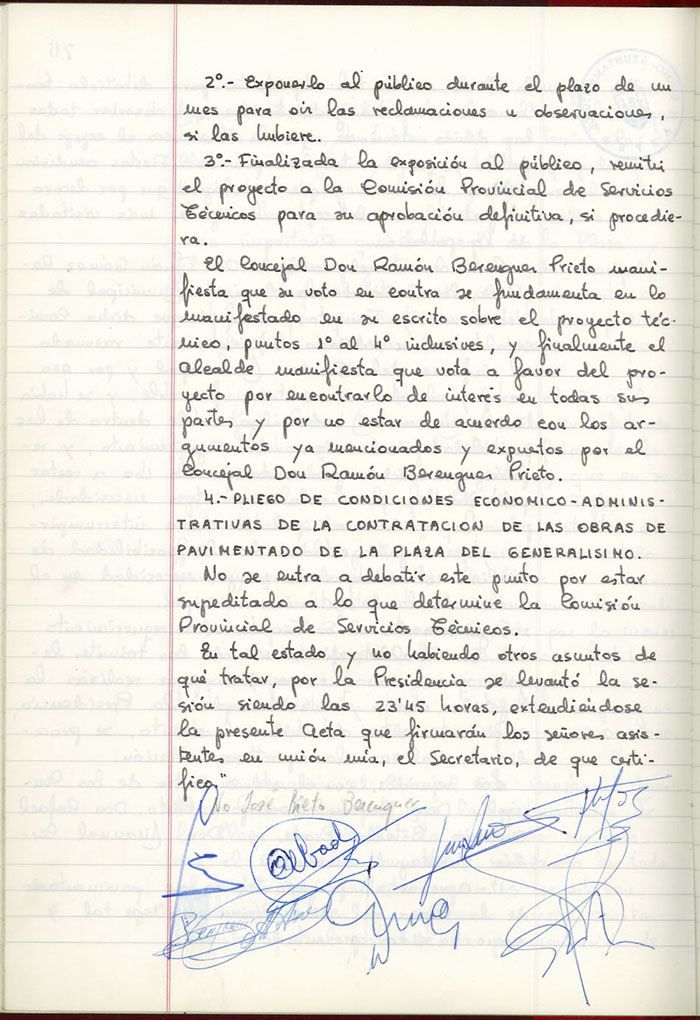 2º.- Exponerlo al público durante el plazo de un
mes para oir las reclamaciones u observaciones,
si las hubiere.
3º.- Finalizada la exposición al público, remitir
el proyecto a la Comisión Provincial de Servicios
Técnicos para su aprobación definitiva, si procedie-
ra.
El Concejal Don Ramón Berenguer Prieto mani-
fiesta que su voto en contra se fundamenta en lo
manifestado en su escrito sobre el proyecto téc-
nico, puntos 1º al 4º inclusives, y finalmente el
Alcalde manifiesta que vota a favor del pro-
yecto por encontrarlo de interés en todas sus
partes y por no estar de acuerdo con los ar-
gumentos ya mencionados y expuestos por el
Concejal Don Ramón Berenguer Prieto.
4.- PLIEGO DE CONDICIONES ECONOMICO-ADMINIS-
TRATIVAS DE LA CONTRATACION DE LAS OBRAS DE
PAVIMENTADO DE LA PLAZA DEL GENERALISIMO.
No se entra a debatir este punto por estar
supeditado a lo que determine la Comisión
Provincial de Servicios Técnicos.
En tal estado y no habiendo otros asuntos de
que tratar, por la Presidencia se levantó la se-
sión siendo las 23'45 horas, extendiéndose
la presente Acta que firmarán los señores asis-
tentes en unión mía, el Secretario, de que certi-
fico."
No José Prieto Berenguer